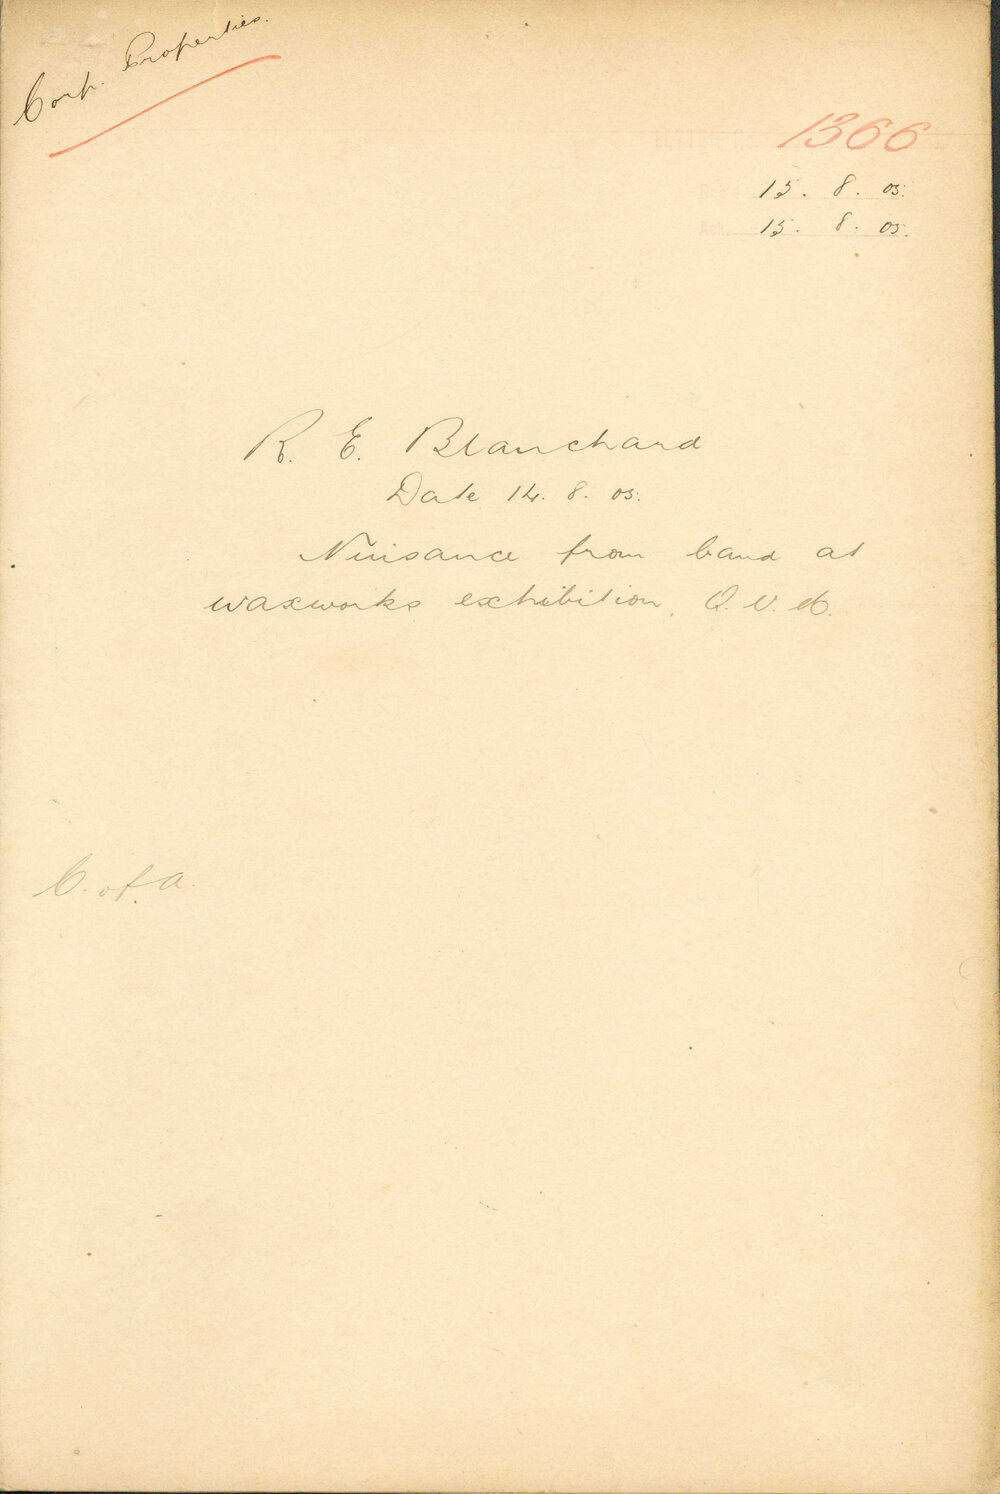 Corp. Properties.
1366
15. 8. 05.
Ack. 15. 8. 05.
R. E. Blanchard
Date 14. 8. 05.
Nuisance from band at
waxworks exhibition, Q. V. M.
C. of. A.